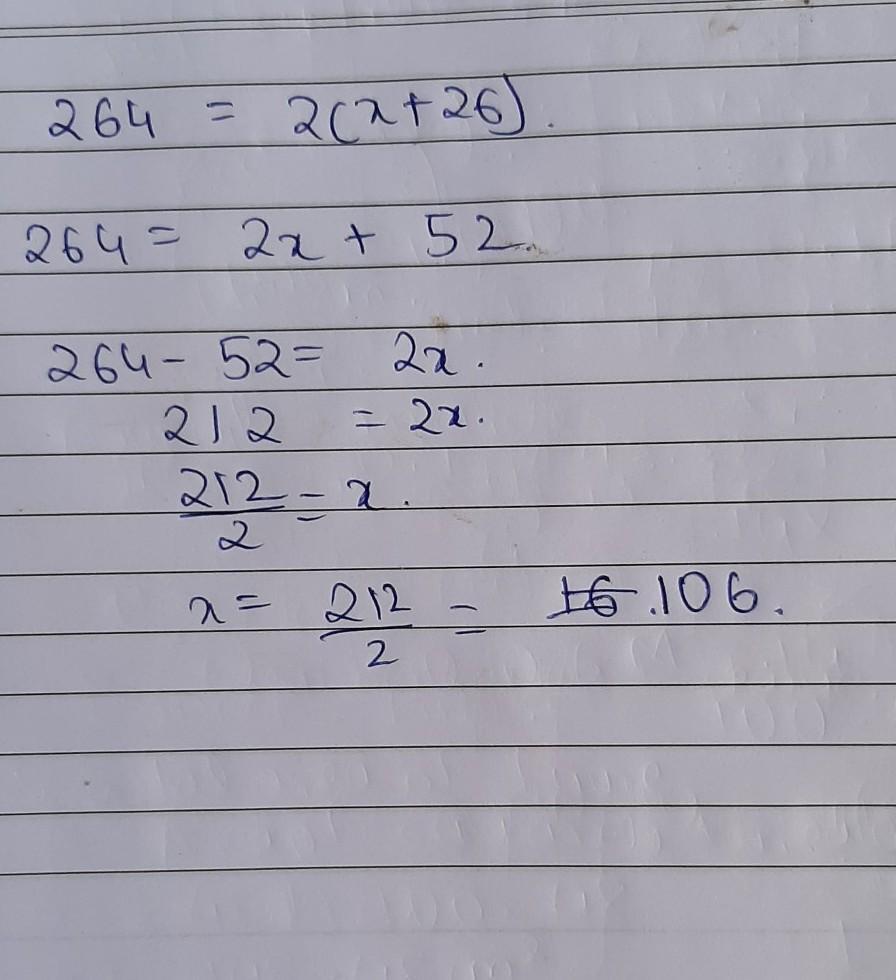 264 = 2(x+26).
264 = 2x + 52
264 - 52 = 2x.
212 = 2x.
212/2 = x.
x = 212/2 = 16 .106.